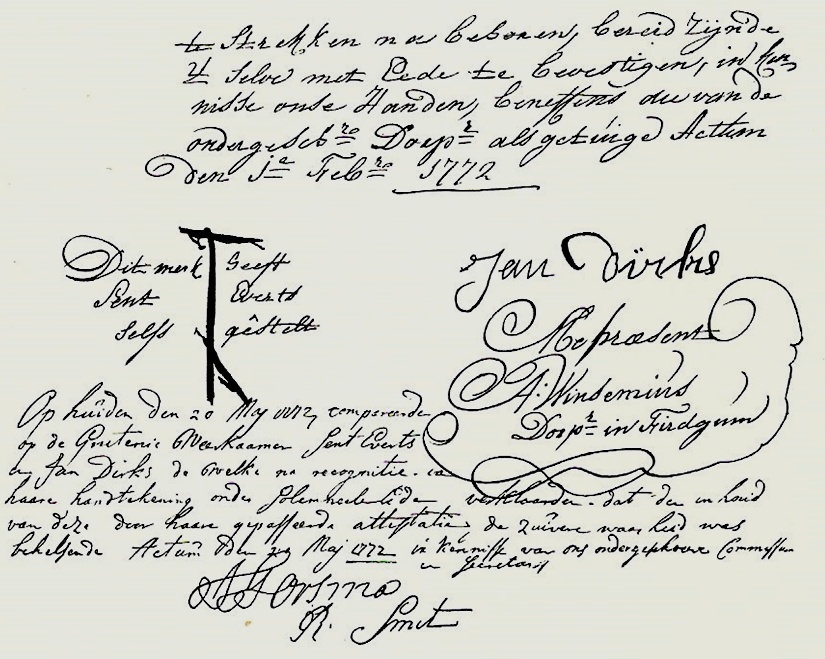 te Strekken na beboren, bereid zijnde
't selve met Eede te bevestigen, in ken
nisse onse Handen, beneffens die van de
ondergeschr. Dorpr. als getuige Actum
den 1e Febr. 1772
Dit merk heeft
Sent Everts
selfs gestelt
Jan Dirks
Me præsent
A: Winsemius
Dorpr. in Firdgum
Op huiden den 20 Maj 1772, compareerde
op de Secreterie Weeskaamer Sent Everts
en Jan Dirks de welke na recognitie van
haare handtekening onder solemneele Eide verklaarden dat den inhoud
van deze door haare gepasseerde attestatie de zuivere waarheid was
behelsende Actum den 20 Maj 1772 in kennisse van ons ondergeschreve Commissar
en Secretaris
Horsma
R. Smit